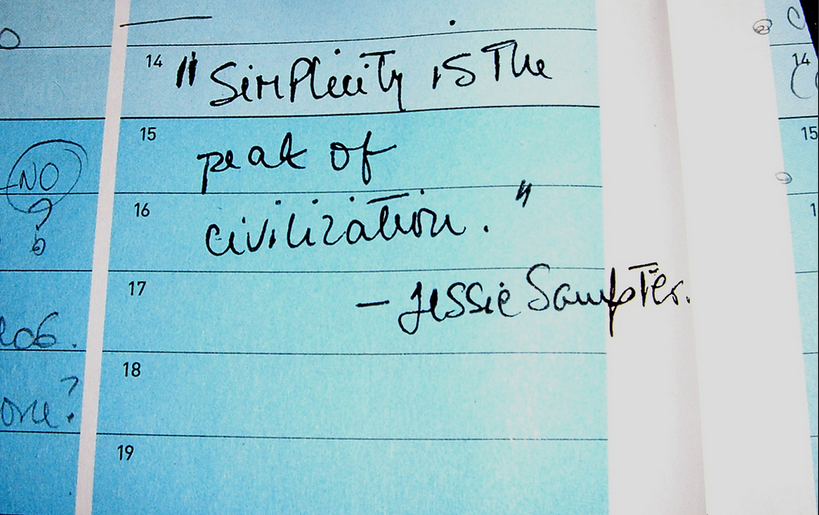 14 "Simplicity is the
15 peak of
16 civilization."
17 - Jessie Sampter.
18
19
NO
?
?
14
15
1